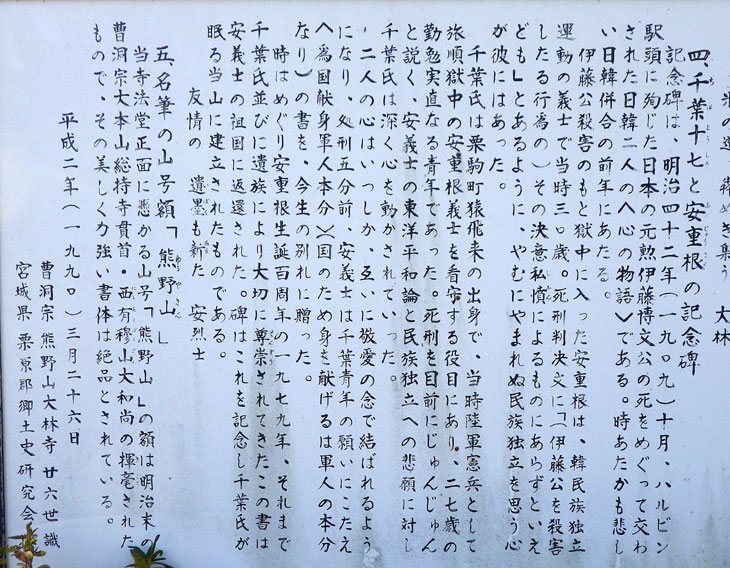 大林
四、千葉十七と安重根の記念碑
記念碑は、明治四十二年（一九〇九）十月、ハルビン
駅頭に殉じた日本の元勲伊藤博文公の死をめぐって交わ
された日韓二人の〈心の物語〉である。時あたかも悲し
い日韓併合の前年にあたる。
伊藤公殺害のもと獄中に入った安重根は、韓民族独立
運動の義士で当時三〇歳。死刑判決文に「（伊藤公を殺害
したる行為の）その決意私憤によるものにあらずといえ
ども」とあるように、やむにやまれぬ民族独立を思う心
が彼にはあった。
千葉氏は栗駒町猿飛来の出身で、当時陸軍憲兵として
旅順獄中の安重根義士を看守する役目にあり、二七歳の
勤勉実直なる青年であった。死刑を目前にじゅんじゅん
と説く、安義士の東洋平和論と民族独立への悲願に対し
千葉氏は深く心を動かされていった。
二人の心はいつしか、互いに敬愛の念で結ばれるよう
になり、処刑五分前、安義士は千葉青年の願いにこたえ
〈為国献身軍人本分〉（国のため身を献げるは軍人の本分
なり）の書を、今生の別れに贈った。
時はめぐり安重根生誕百周年の一九七九年、それまで
千葉氏並びに遺族により大切に尊崇されてきたこの書は
安義士の祖国に返還された。碑はこれを記念し千葉氏が
眠る当山に建立されたものである。
友情の　遺墨も新た　安烈士
五、名筆の山号額「熊野山」
ゆうやさん
当寺法堂正面に懸かる山号「熊野山」の額は明治末の
曹洞宗大本山総持寺貫首・西有穆山大和尚の揮毫された
もので、その美しく力強い書体は絶品とされている。
平成二年（一九九〇）三月二十六日
曹洞宗　熊野山大林寺　廿六世識
宮城県　栗原郡郷土史研究会